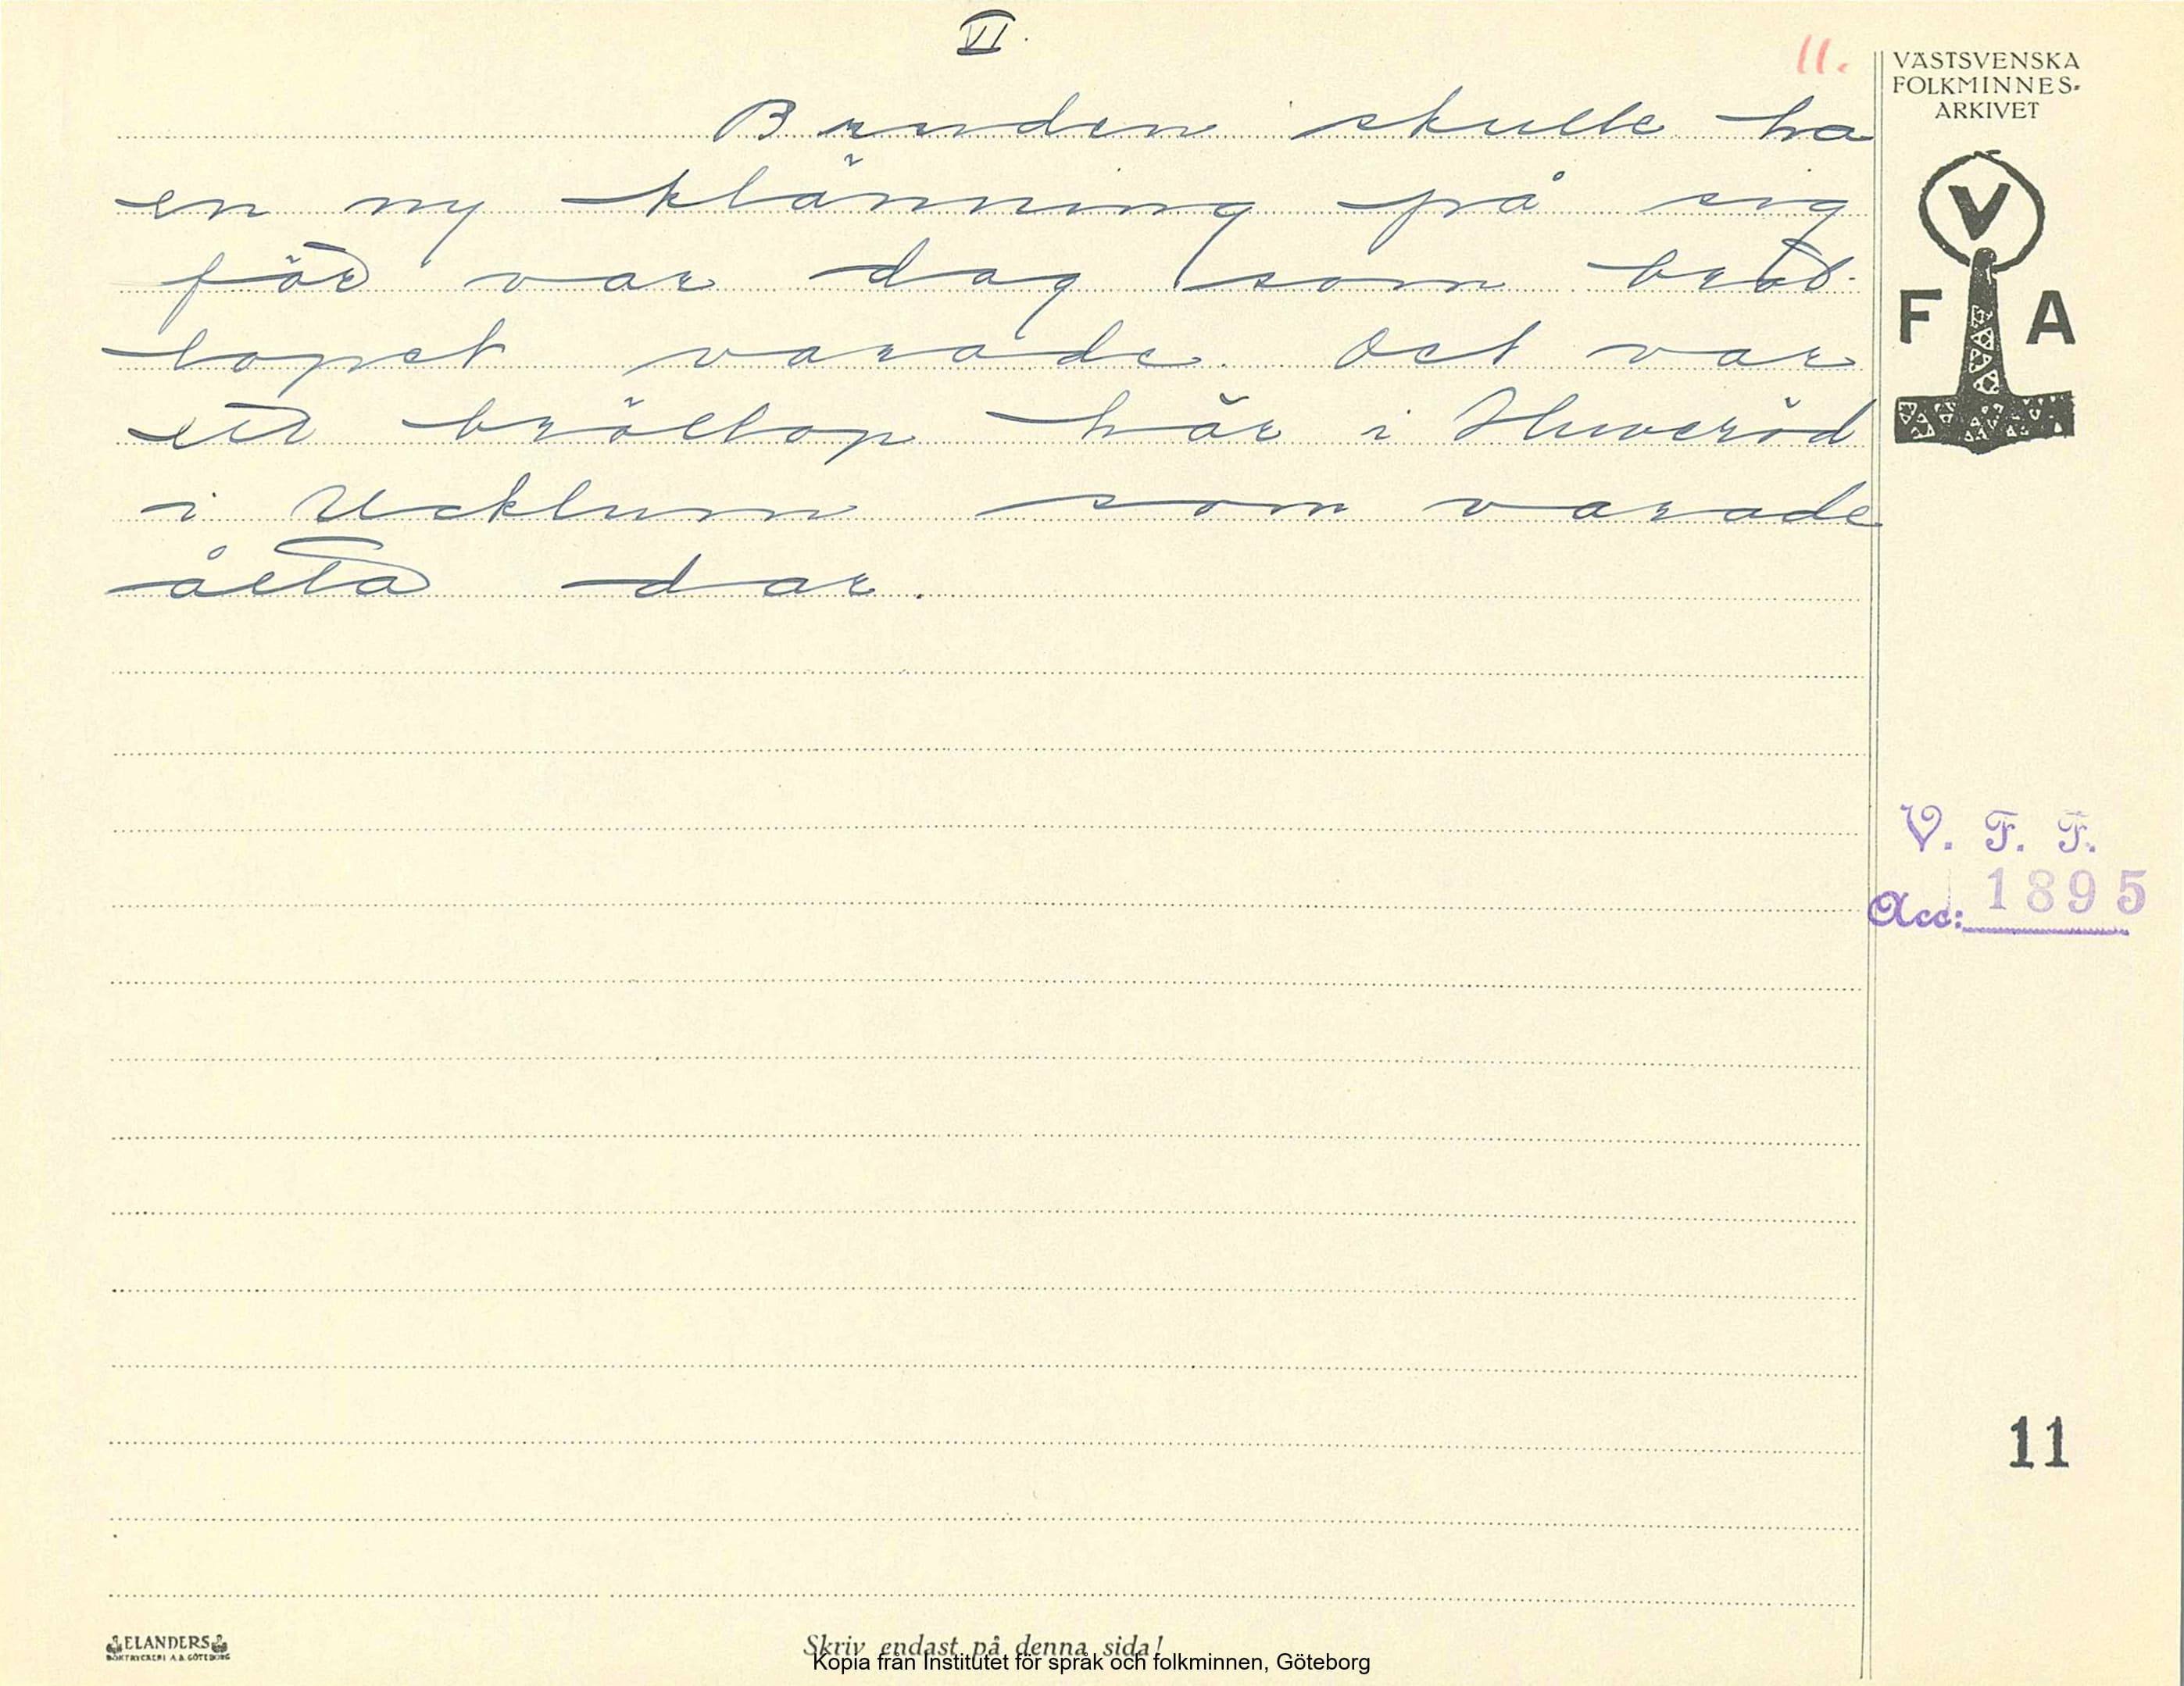 VI.
11.
VÄSTSVENSKA
FOLKMINNES-
ARKIVET
V
F A
Bruden skulle ha
en ny klänning på sig
för var dag som bröl-
lopet varade. Det var
ett bröllop här i Huveröd
i Ucklum som varade
åtta dar.
V. F. F.
Acc: 1895
11
ELANDERS
BOKTRYCKERI A.B. GÖTEBORG
Skriv endast på denna sida!
Kopia från Institutet för språk och folkminnen, Göteborg